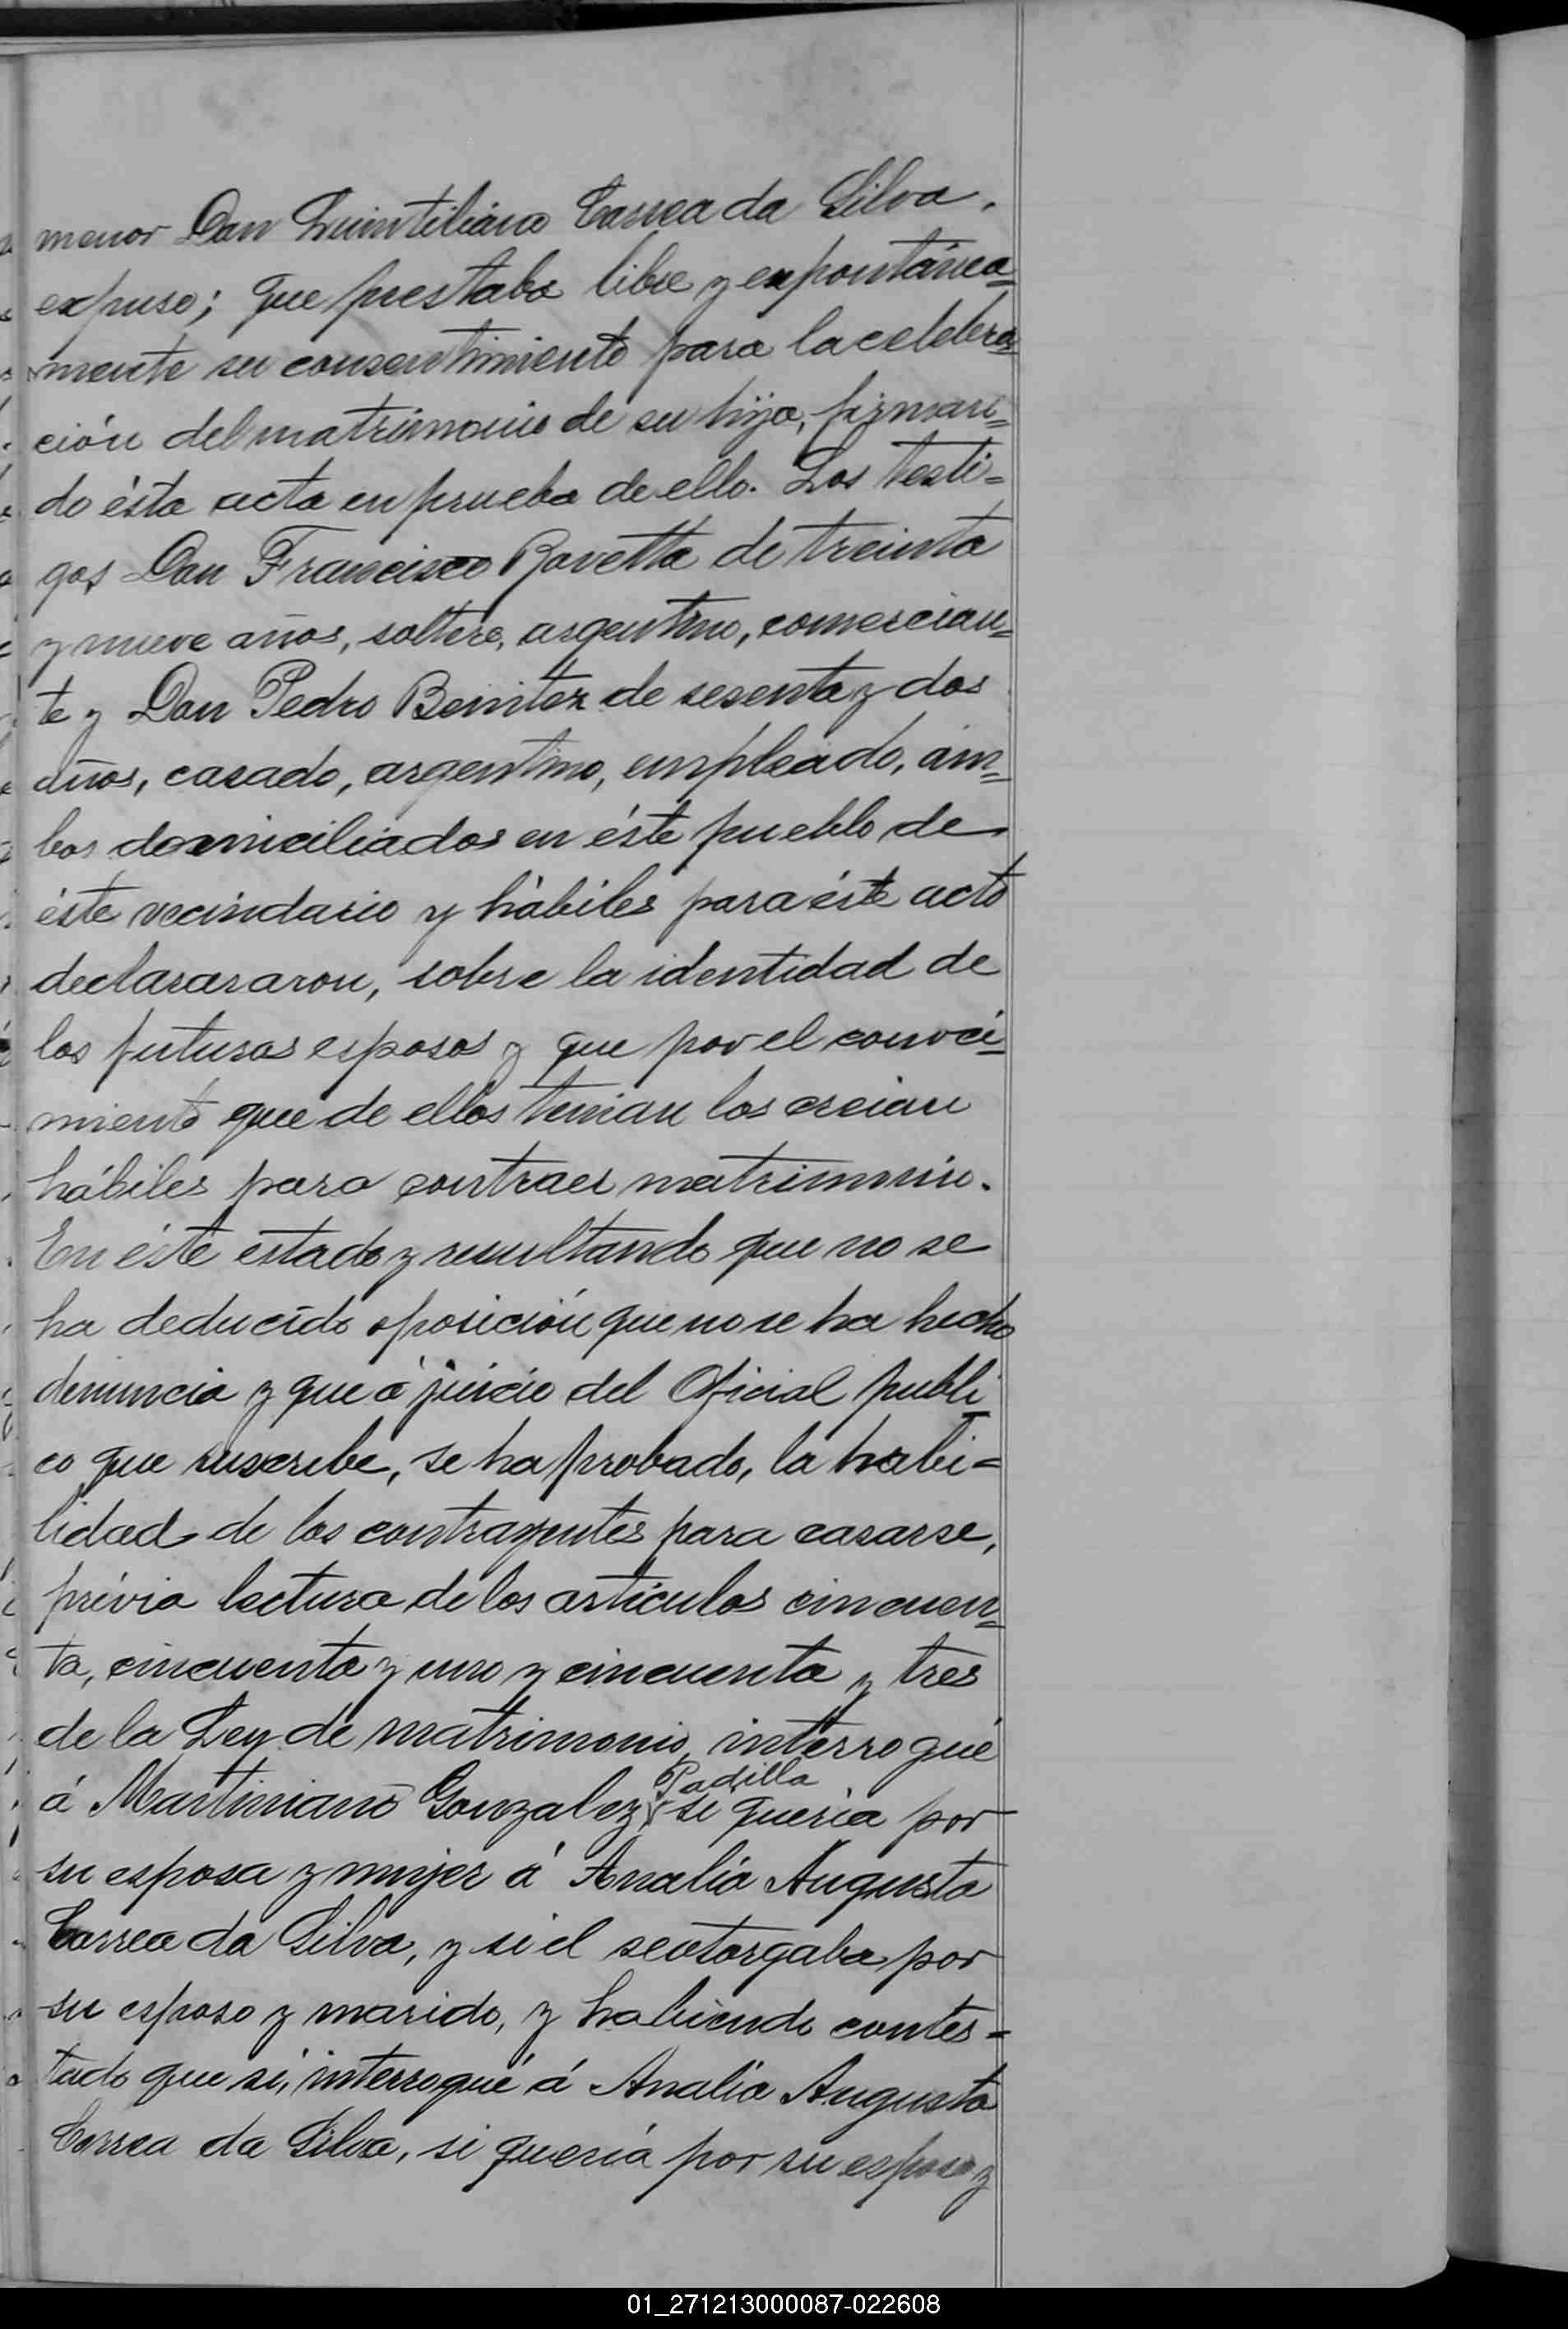 menor Don Quintiliano Correa da Silva,
expuso; que prestaba libre y expontánea=
mente su consentimiento para la celebra=
ción del matrimonio de su hija, firman=
do ésta acta en prueba de ello. Los testi=
gos Don Francisco Ravetta de treinta
y nueve años, soltero, argentino, comercian=
te y Don Pedro Benitez de sesenta y dos
años, casado, argentino, empleado, am=
bos domiciliados en éste pueblo de
éste vecindario y hábiles para éste acto
declarararon, sobre la identidad de
los futuros esposos y que por el conoci=
miento que de ellos tenian los creian
hábiles para contraer matrimonio.
En éste estado y resultando que no se
ha deducido oposición que no se ha hecho
denuncia y que á juicio del Oficial publi
co que suscribe, se ha probado, la habi=
lidad de los contrayentes para casarse,
prévia lectura de los artículos cincuen=
ta, cincuenta y uno y cincuenta y tres
de la Ley de matrimonio, interrogué
Padilla
á Martiniano Gonzalez, si queria por
su esposa y mujer á Analía Augusta
Correa da Silva, y si el se otorgaba por
su esposo y marido, y habiendo contes=
tado que si, interrogué á Analía Augusta
Correa da Silva, si quería por su esposo y
01_271213000087-022608